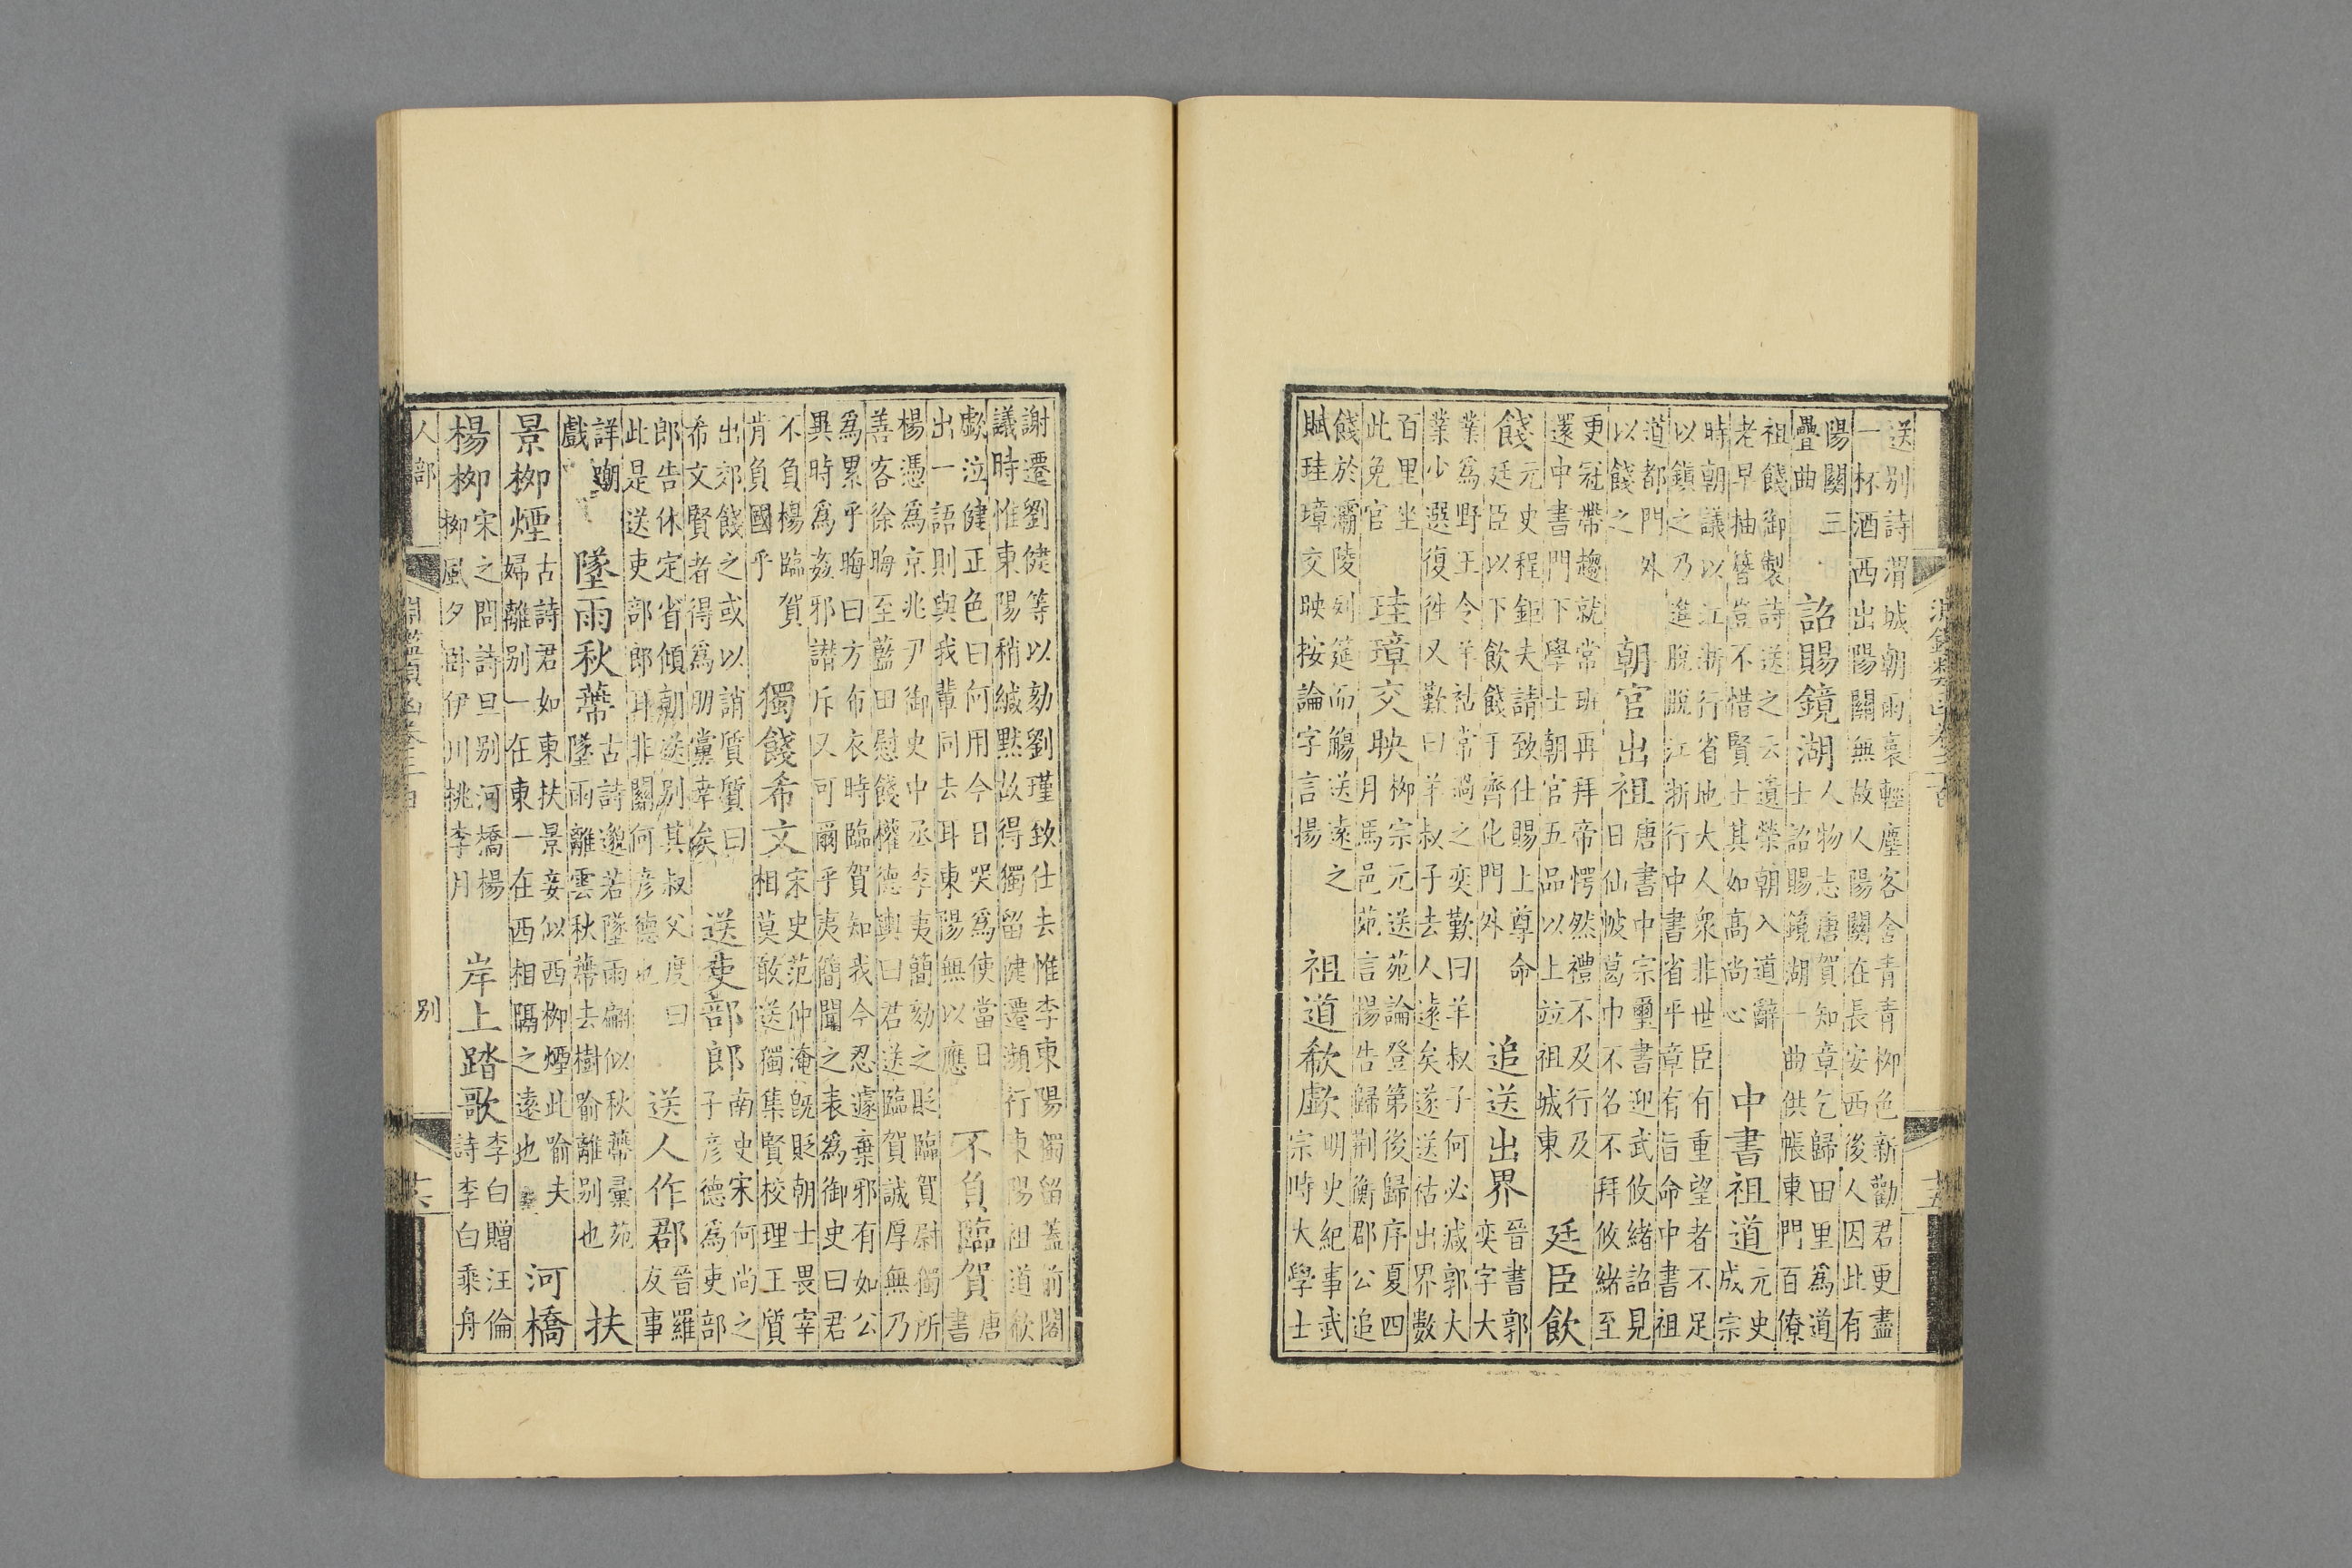 淵鑑類函卷三百
十五
送别詩渭城朝雨裛輕塵客舍青青栁色新勸君更盡
一杯酒西出陽關無故人陽關在長安西後人因此有
陽關三
疊曲
詔賜鏡湖
人物志唐賀知章乞歸田里為道
士詔賜鏡湖一曲供帳東門百僚
祖餞御製詩送之云遺榮朝入道辭
老早抽簪豈不惜賢士其如高尚心
中書祖道
元史
成宗
時朝議以江浙行省地大人衆非世臣有重望者不足
以鎮之乃進脫脫江浙行中書省平章有旨命中書祖
道都門外
以餞之
朝官出祖
唐書中宗璽書迎武攸緒詔見
日仙帔葛巾不名不拜攸緒至
更冠帶趨就常班再拜帝愕然禮不及行及
還中書門下學士朝官五品以上竝祖城東
廷臣飲
餞
元史程鉅夫請致仕賜上尊命
廷臣以下飲餞于齊化門外
追送出界
晉書郭
奕字大
業為野王令羊祜常過之奕歎曰羊叔子何必減郭大
業少選復徃又歎曰羊叔子去人遠矣遂送祜出界數
百里坐
此免官
珪璋交映
栁宗元送苑論登第後歸序夏四
月馬邑苑言揚告歸荆衡郡公追
餞於灞陵列筵而觴送遠之
賦珪璋交映按論字言揚
祖道欷歔
明史紀事武
宗時大學士
謝遷劉健等以劾劉瑾致仕去惟李東陽獨留葢前閣
議時惟東陽稍緘默故得獨留健遷瀕行東陽祖道欷
歔泣健正色曰何用今日哭為使當日
出一語則與我輩同去耳東陽無以應
不負臨賀
唐
書
楊憑為京兆尹御史中丞李夷簡劾之貶臨賀尉獨所
善客徐晦至藍田慰餞權德輿曰君送臨賀誠厚無乃
為累乎晦曰方布衣時臨賀知我今忍遽棄邪有如公
異時為姦邪譖斥又可爾乎夷簡聞之表為御史曰君
不負楊臨賀
肯負國乎
獨餞希文
宋史范仲淹旣貶朝士畏宰
相莫敢送獨集賢校理王質
出郊餞之或以誚質質曰
希文賢者得為朋黨幸矣
送吏部郎
南史宋何尚之
子彦德為吏部
郎告休定省傾朝送别其叔父度曰
此是送吏部郎耳非關何彦德也
送人作郡
晉羅
友事
詳嘲
戲
墜雨秋蔕
古詩邈若墜雨翩似秋蔕彚苑
墜雨離雲秋蔕去樹喻離别也
扶
景栁煙
古詩君如東扶景妾似西栁煙此喻夫
婦離别一在東一在西相隔之遠也
河橋
楊栁
宋之問詩旦别河橋楊
栁風夕卧伊川桃李月
岸上踏歌
李白贈汪倫
詩李白乘舟
人部
淵鑑類函卷三百
别
十六